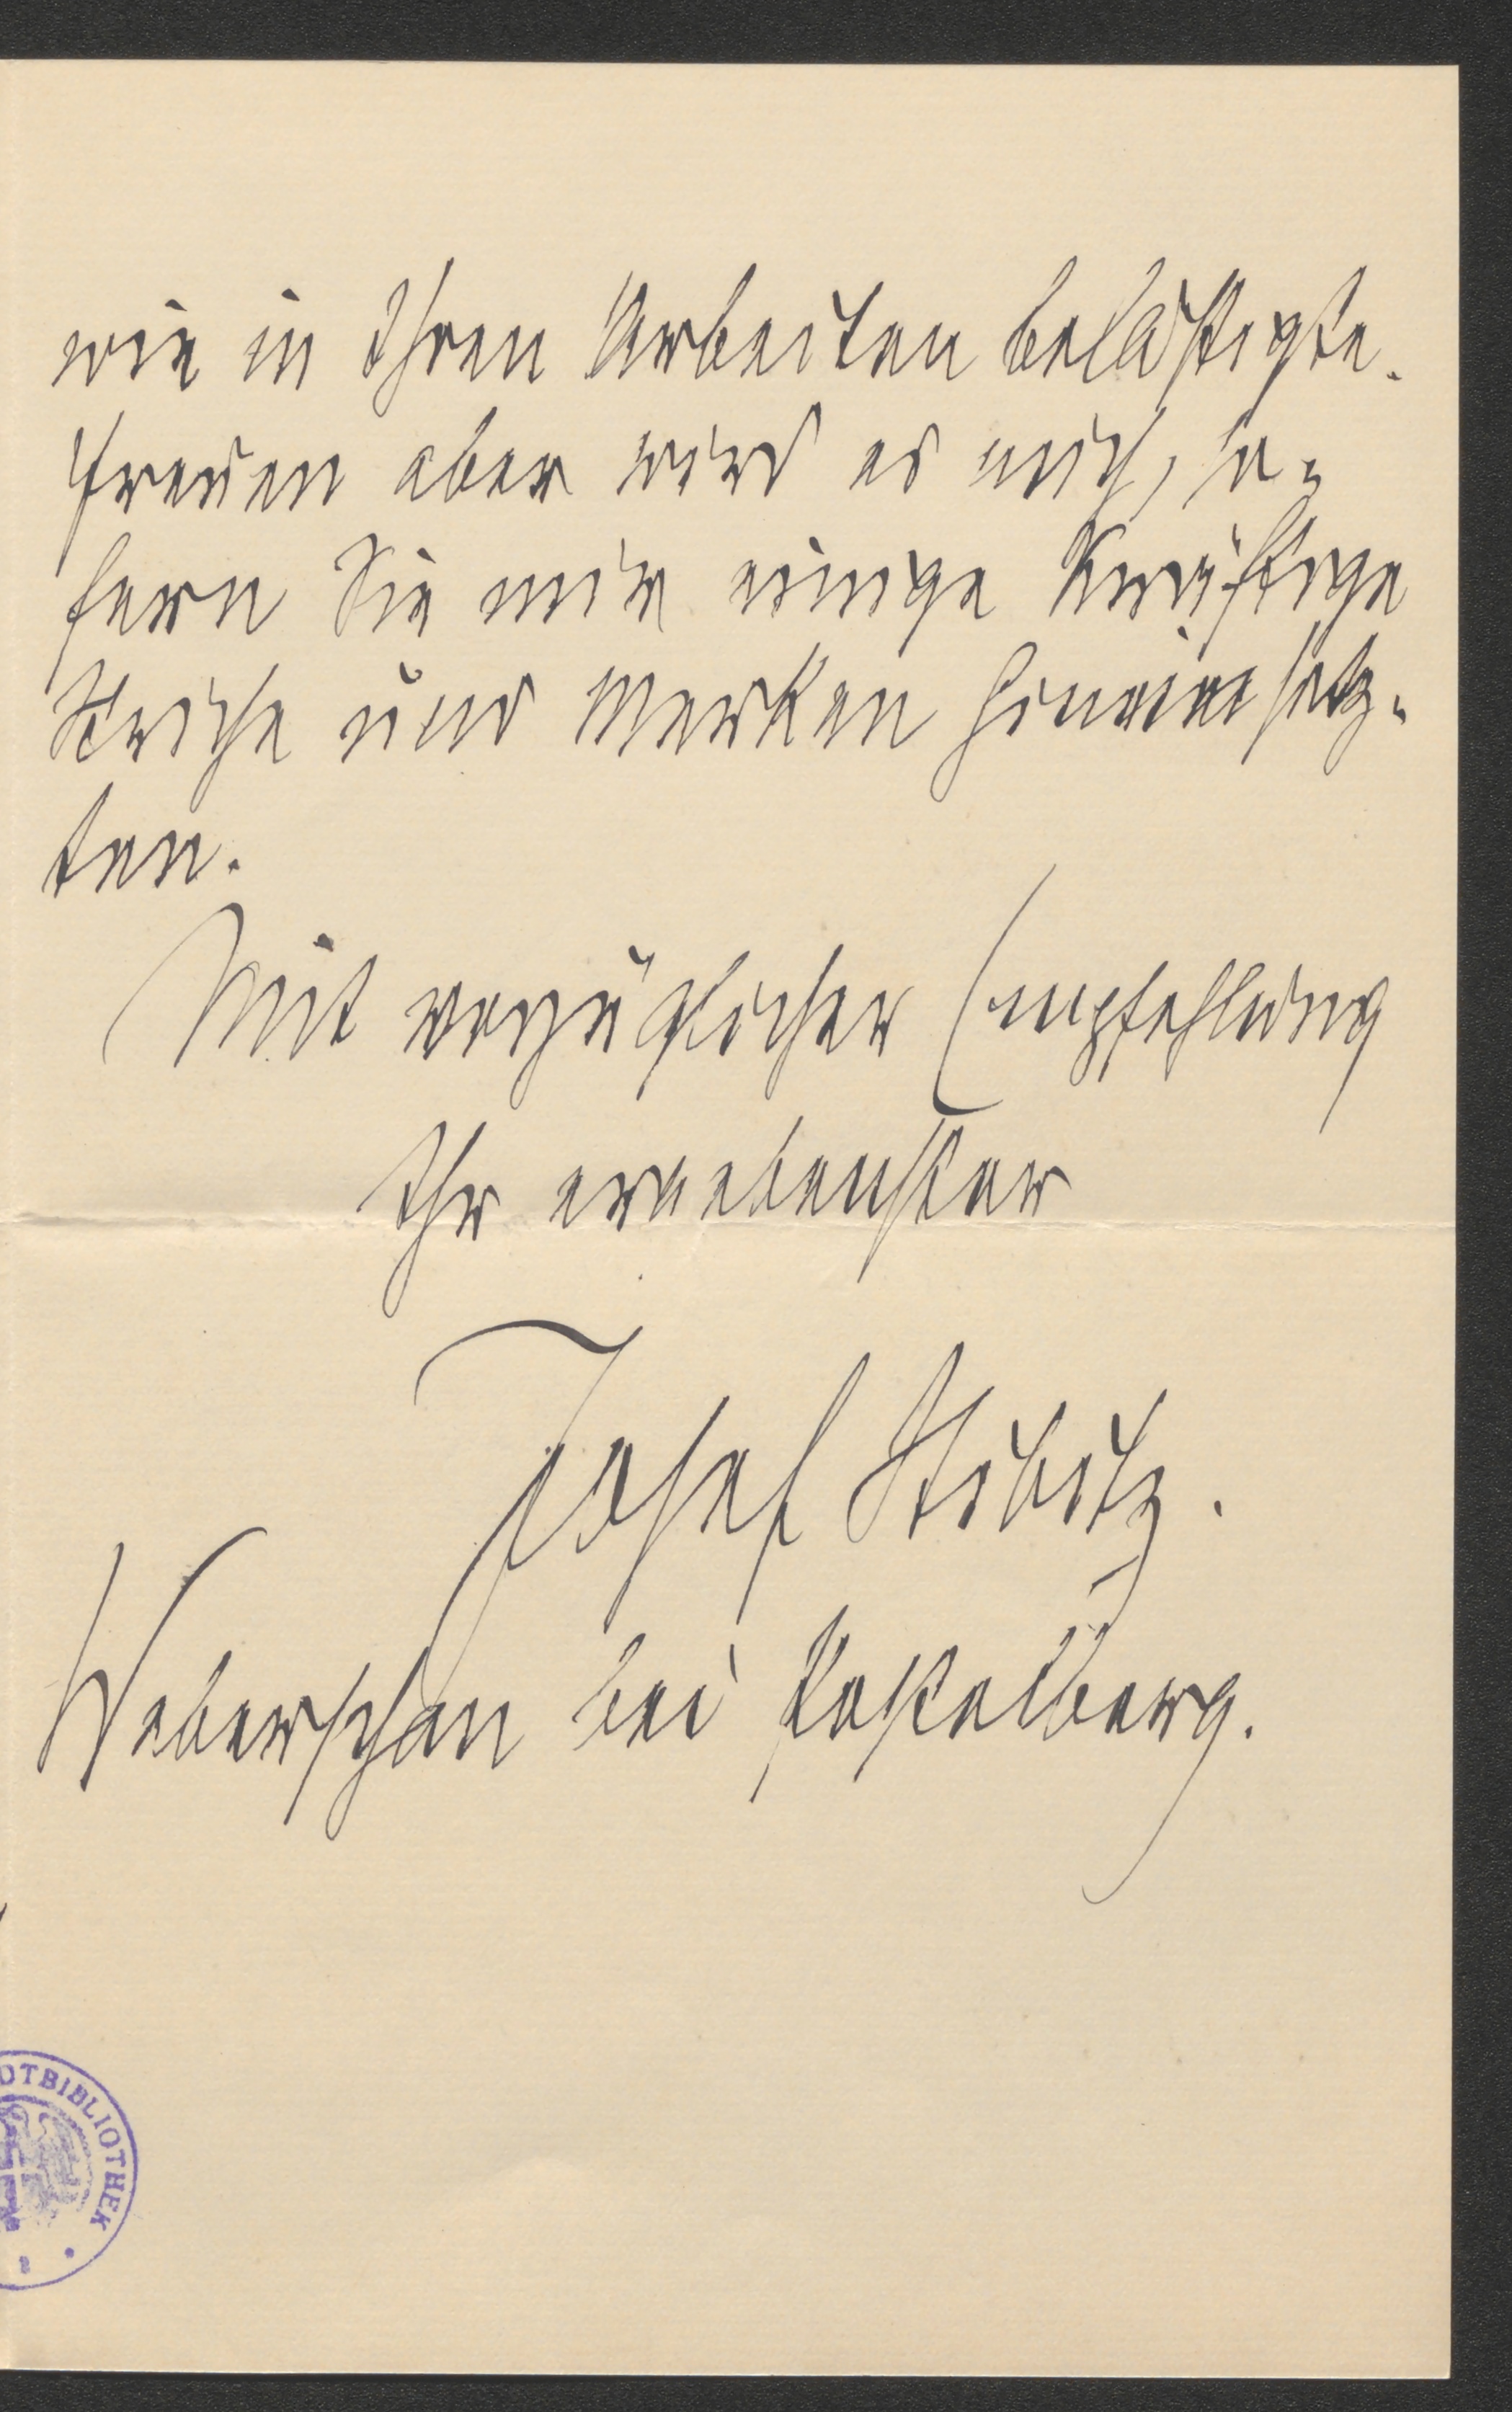 wie in Ihren Arbeiten belästigte.
Freuen aber wird es mich, in-
fern Sie mir einige kräftige
Striche und Marken hineinsetz-
ten.
Mit vorzüglicher Empfehlung
Ihr ergebenster
Josef Stibitz.
Weberschan bei Postelberg.
DTBIBLIOTHEK